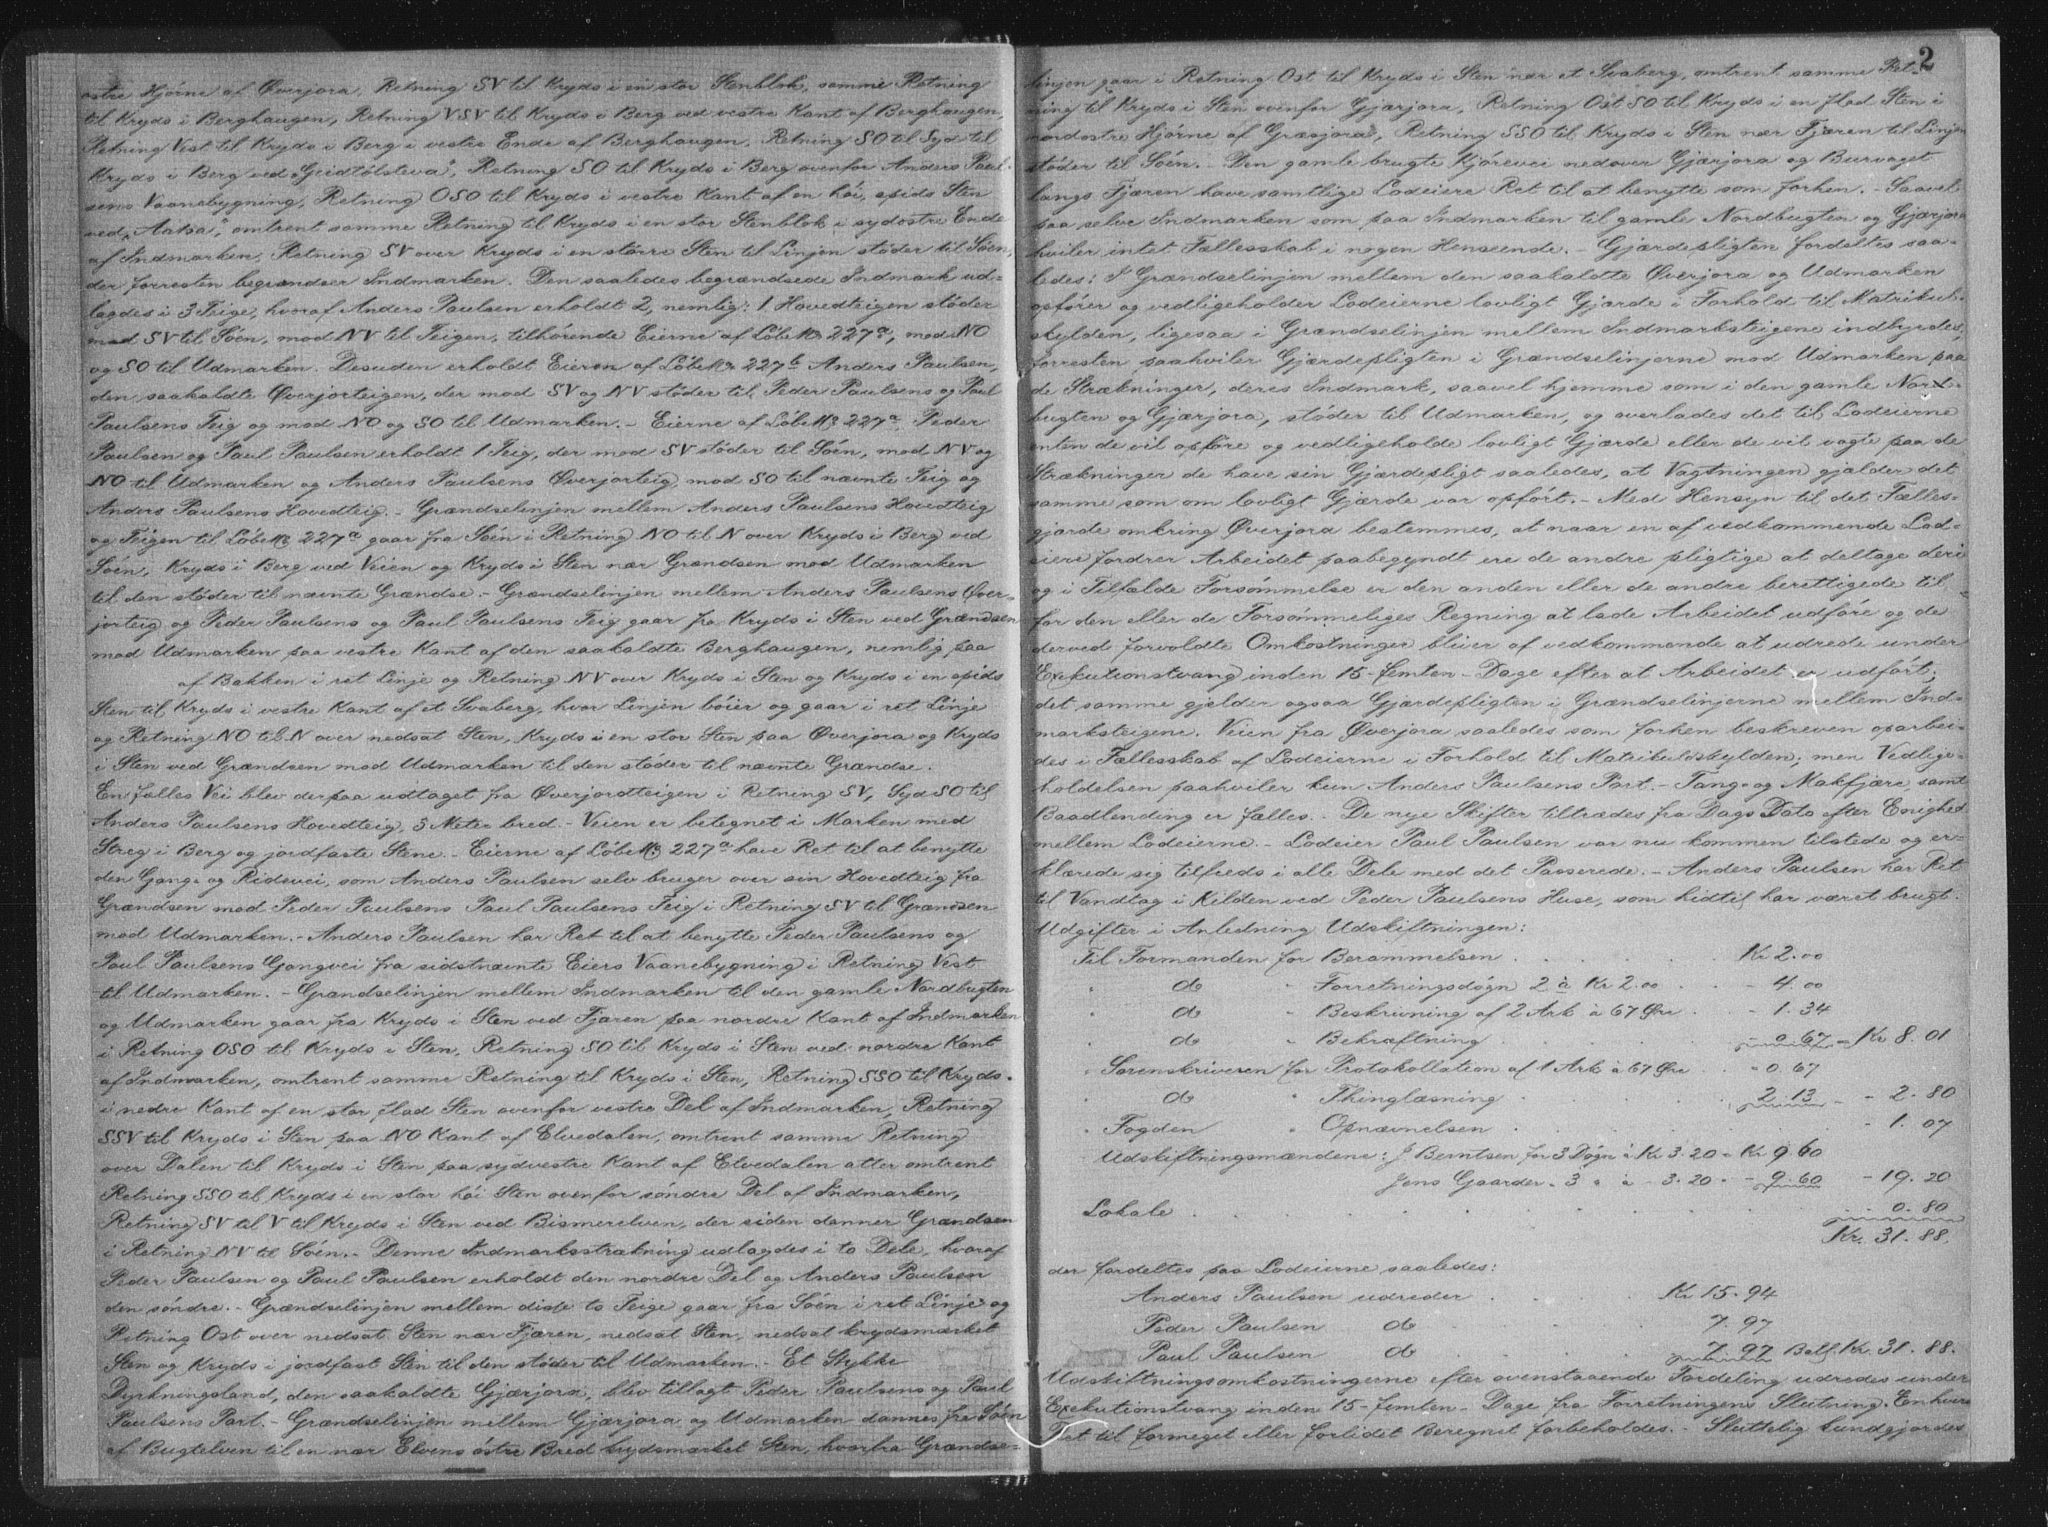 østre Hjørne af Øverjora, Retning SV til Kryds i en stor Stenblok, samme Retning
til Kryds i Berghaugen, Retning VSV til Kryds i Berg ved vestre Kant af Berghaugen,
Retning Vest til Kryds i Berg i vestre Ende af Berghaugen, Retning SO til Syd til
Kryds i Berg ved "Geidtölsteva", Retning SO til Kryds i Berg ovenfor Anders Paul-
sens Vaanebygning, Retning OSO til Kryds i vestre Kant af en høi, spids Sten
ved "Aatsa", omtrent samme Retning til Kryds i en stor Stenblok i sydostre Ende
af Indmarken, Retning SV over Kryds i en större Sten til Linjen stöder til Söen,
der forresten begrændser Indmarken. Den saaledes begrændsede Indmark ud-
lagdes i 3 Teige, hvoraf Anders Paulsen erholdt 2, nemlig: 1 Hovedteigen stöder
mod SV til Söen, mod NV til Teigen, tilhörende Eierne af Löbe № 227a, mod NO
og SO til Udmarken. Desuden erholdt Eieren af Löbe № 227b Anders Paulsen,
den saakaldte Øverjorteigen, der mod SV og NV stöder til Peder Paulsens og Paul
Paulsens Teig og mod NO og SO til Udmarken. – Eierne af Löbe № 227a, Peder
Paulsen og Paul Paulsen erholdt 1 Teig, der mod SV stöder til Söen, mod NV og
NO til Udmarken og Anders Paulsens Øverjorteig, mod SO til nævnte Teig og
Anders Paulsens Hovedteig. – Grændselinjen mellem Anders Paulsens Hovedteig
og Teigen til Löbe № 227a gaar fra Söen i Retning NO til N over Kryds i Berg ved
Söen, Kryds i Berg ved Veien og Kryds i Sten nær Grændsen mod Udmarken
til den stöder til nævnte Grændse. – Grændselinjen mellem Anders Paulsens Øver-
jorteig og Peder Paulsens og Paul Paulsens Teig gaar fra Kryds i Sten ved Grændsen
mod Udmarken paa vestre Kant af den saakaldte Berghaugen, nemlig paa
af Bakken i ret Linje og Retning NV over Kryds i Sten og Kryds i en spids
Sten til Kryds i vestre Kant af et Svaberg, hvor Linjen böier og gaar i ret Linje
og Retning NO til N over nedsat Sten, Kryds i en stor Sten paa Øverjora og Kryds
i Sten ved Grændsen mod Udmarken til den stöder til nævnte Grændse.
En fælles Vei blev derpaa udtaget fra Øverjordteigen i Retning SV, Syd SO til
Anders Paulsens Hovedteig, 3 Meter bred. – Veien er betegnet i Marken med
Streg i Berg og jordfaste Stene. – Eierne af Löbe № 227a have Ret til at benytte
den Gang- og Ridevei, som Anders Paulsen selv bruger over sin Hovedteig fra
Grændsen mod Peder Paulsens Paul Paulsens Teig i Retning SV til Grændsen
mod Udmarken. – Anders Paulsen har Ret til at benytte Peder Paulsens og
Paul Paulsens Gangvei fra sidstnævnte Eiers Vaanebygning i Retning Vest
til Udmarken. – Grændselinjen mellem Indmarken til den gamle Nordbugten
og Udmarken gaar fra Kryds i Sten ved Fjæren paa nordre Kant af Indmarken
i Retning OSO til Kryds i Sten, Retning SO til Kryds i Sten ved nordre Kant
af Indmarken, omtrent samme Retning til Kryds i Sten, Retning SSO til Kryds
i nedre Kant af en stor flad Sten ovenfor vestre Del af Indmarken, Retning
SSV til Kryds i Sten paa NO Kant af Elvedalen, omtrent samme Retning
over Dalen til Kryds i Sten paa sydvestre Kant af Elvedalen atter omtrent
Retning SSO til Kryds i en stor höi Sten ovenfor söndre Del af Indmarken,
Retning SV til V til Kryds i Sten ved Bismerelven, der siden danner Grændsen
i Retning NV til Söen. – Denne Indmarksstrækning udlagdes i to Dele, hvoraf
Peder Paulsen og Paul Paulsen erholdt den nordre Del og Anders Paulsen
den söndre. – Grændselinjen mellem disse to Teige gaar fra Söen i ret Linje og
Retning Ost over nedsat Sten nær Fjæren, nedsat Sten, nedsat krydsmærket
Sten og Kryds i jordfast Sten til den stöder til Udmarken. – Et Stykke
Dyrkningsland, den saakaldte Gjærjora, blev tillagt Peder Paulsens og Paul
Paulsens Part. – Grændselinjen mellem Gjærjora og Udmarken dannes fra Söen
af Bugtelven til en nær Elvens östre Bred krydsmærket Sten, hvorfra Grændse-
2
linjen gaar i Retning Ost til Kryds i Sten nær et Svaberg, omtrent samme Ret-
ning til Kryds i Sten ovenfor Gjærjora, Retning Ost SO til Kryds i en flad Sten i
nordostre Hjörne af Græsjora, Retning SSO til Kryds i Sten nær Fjæren til Linjen
stöder til Söen. – Den gamle brugte Kjörevei nedover Gjærjora og Burvaget
langs Fjæren have samtlige Lodeiere Ret til at benytte som forhen. – Saavel
paa selve Indmarken som paa Indmarken til gamle Nordbugten og Gjærjora
hviler intet Fællesskab i nogen Henseende. – Gjærdepligten fordeltes saa-
ledes: I Grændselinjen mellem den saakaldte Øverjora og Udmarken
opförer og vedligeholder Lodeierne lovligt Gjærde i Forhold til Matrikul-
skylden, ligesaa i Grændselinjen mellem Indmarksteigene indbyrdes,
forresten paahviler Gjærdepligten i Grændselinjerne mod Udmarken paa
de Strækninger, deres Indmark, saavel hjemme som i den gamle Nord-
bugten og Gjærjora, stöder til Udmarken, og overlades det til Lodeierne
enten de vil opföre og vedligeholde lovligt Gjærde eller de vil vogte paa de
Strækninger de have sin Gjærdepligt saaledes, at Vogtningen gjælder det
samme som om lovligt Gjærde var opfört. – Med Hensyn til det Fælles-
gjærde omkring Øverjora bestemmes, at naar en af vedkommende Lod-
eiere fordrer Arbeidet paabegyndt ere de andre pligtige at deltage deri
og i Tilfælde Forsömmelse er den anden eller de andre berettigede til
for den eller de Forsömmeliges Regning at lade Arbeidet udföre og de
derved forvoldte Omkostninger bliver af vedkommende at udrede under
Exekutionstvang inden 15 – femten – Dage efter at Arbeidet er udfört;
det samme gjelder ogsaa Gjærdepligten i Grændselinjerne mellem Ind-
marksteigene. Veien fra Øverjora saaledes som forhen beskreven oparbei-
des i Fællesskab af Lodeierne i Forhold til Matrikulskylden, men Vedlige-
holdelsen paahviler kun Anders Paulsens Part. – Tang- og Makfjære, samt
Baadlending er fælles. – De nye Skifter tiltrædes fra Dags Dato efter Enighed
mellem Lodeierne. – Lodeier Paul Paulsen var nu kommen tilstede og er-
klærede sig tilfreds i alle Dele med det Passerede. – Anders Paulsen har Ret
til Vandtag i Kilden ved Peder Paulsens Huse, som hidtil har været brugt.
Udgifter i Anledning Udskiftningen:
Til Formanden for Berammelsen Kr 2.00
" do " Forretningsdögn 2 à Kr 2.00 - 4.00
" do " Beskrivning af 2 Ark à 67 Øre - 1.34
" do " Bekræftning - 0.67 - Kr 8.01
" Sorenskriveren for Protokollation af 1 Ark à 67 Øre - 0.67
" do " Thinglæsning 2.13 - 2.80
" Fogden " Opnævnelsen - 1.07
" Udskiftningsmændene: J Berntsen for 3 Dögn à Kr 3.20 = Kr 9.60
Jens Gaarder " 3 " à - 3.20 - 9.60 - 19.20
Lokale 0.80
Kr. 31.88.
der fordeltes paa Lodeierne saaledes:
Anders Paulsen udreder Kr 15.94
Peder Paulsen do 7.97
Paul Paulsen do 7.97 Belb Kr. 31.88.
Udskiftningsomkostningerne efter ovenstaaende Fordeling udredes under
Exekutionstvang inden 15 – femten – Dage fra Forretningens Slutning. Enhvers
Ret til formeget eller forlidet Beregnet forbeholdes. – Sluttelig kundgjordes